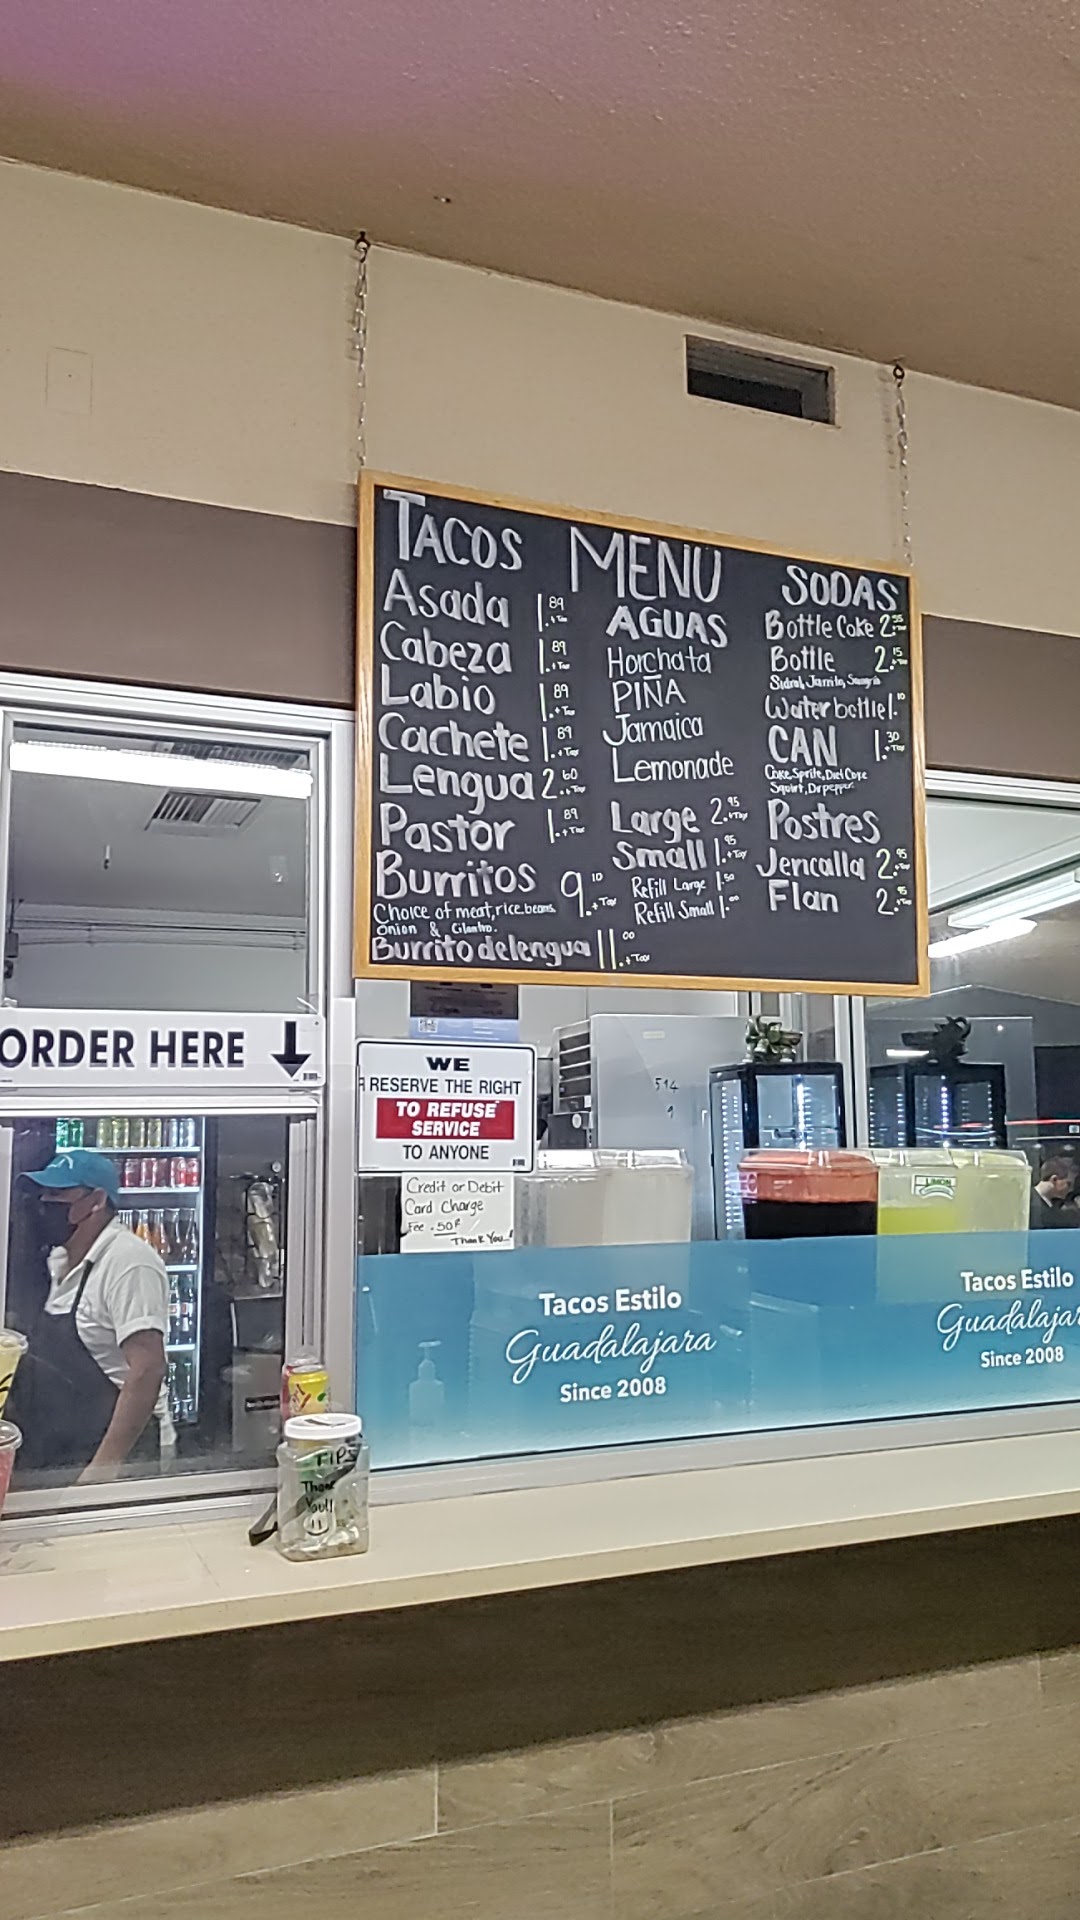 TACOS
Asada 1.89 +Tax
Cabeza 1.89 +Tax
Labio 1.89 +Tax
Cachete 1.89 +Tax
Lengua 2.60 +Tax
Pastor 1.89 +Tax
Burritos 9.10 +Tax
Choice of meat, rice, beans,
onion & Cilantro.
Burrito de lengua 11.00 +Tax
MENU
AGUAS
Horchata
PIÑA
Jamaica
Lemonade
Large 2.95 +Tax
Small 1.95 +Tax
Refill Large 1.50
Refill Small 1.00
SODAS
Bottle Coke 2.55 +Tax
Bottle 2.15 +Tax
Sidral, Jarrito, Sangria
Water bottle 1.10
CAN 1.30 +Tax
Coke, Sprite, Diet Coke
Squirt, Dr pepper
Postres
Jericalla 2.95 +Tax
Flan 2.95 +Tax
ORDER HERE
WE
RESERVE THE RIGHT
TO REFUSE
SERVICE
TO ANYONE
Credit or Debit
Card Charge
Fee .50¢
Thank You..!
514
9
LIMON
Tacos Estilo
Guadalajara
Since 2008
Tacos Estilo
Guadalajar
Since 2008
TIPS
Thank
You!!